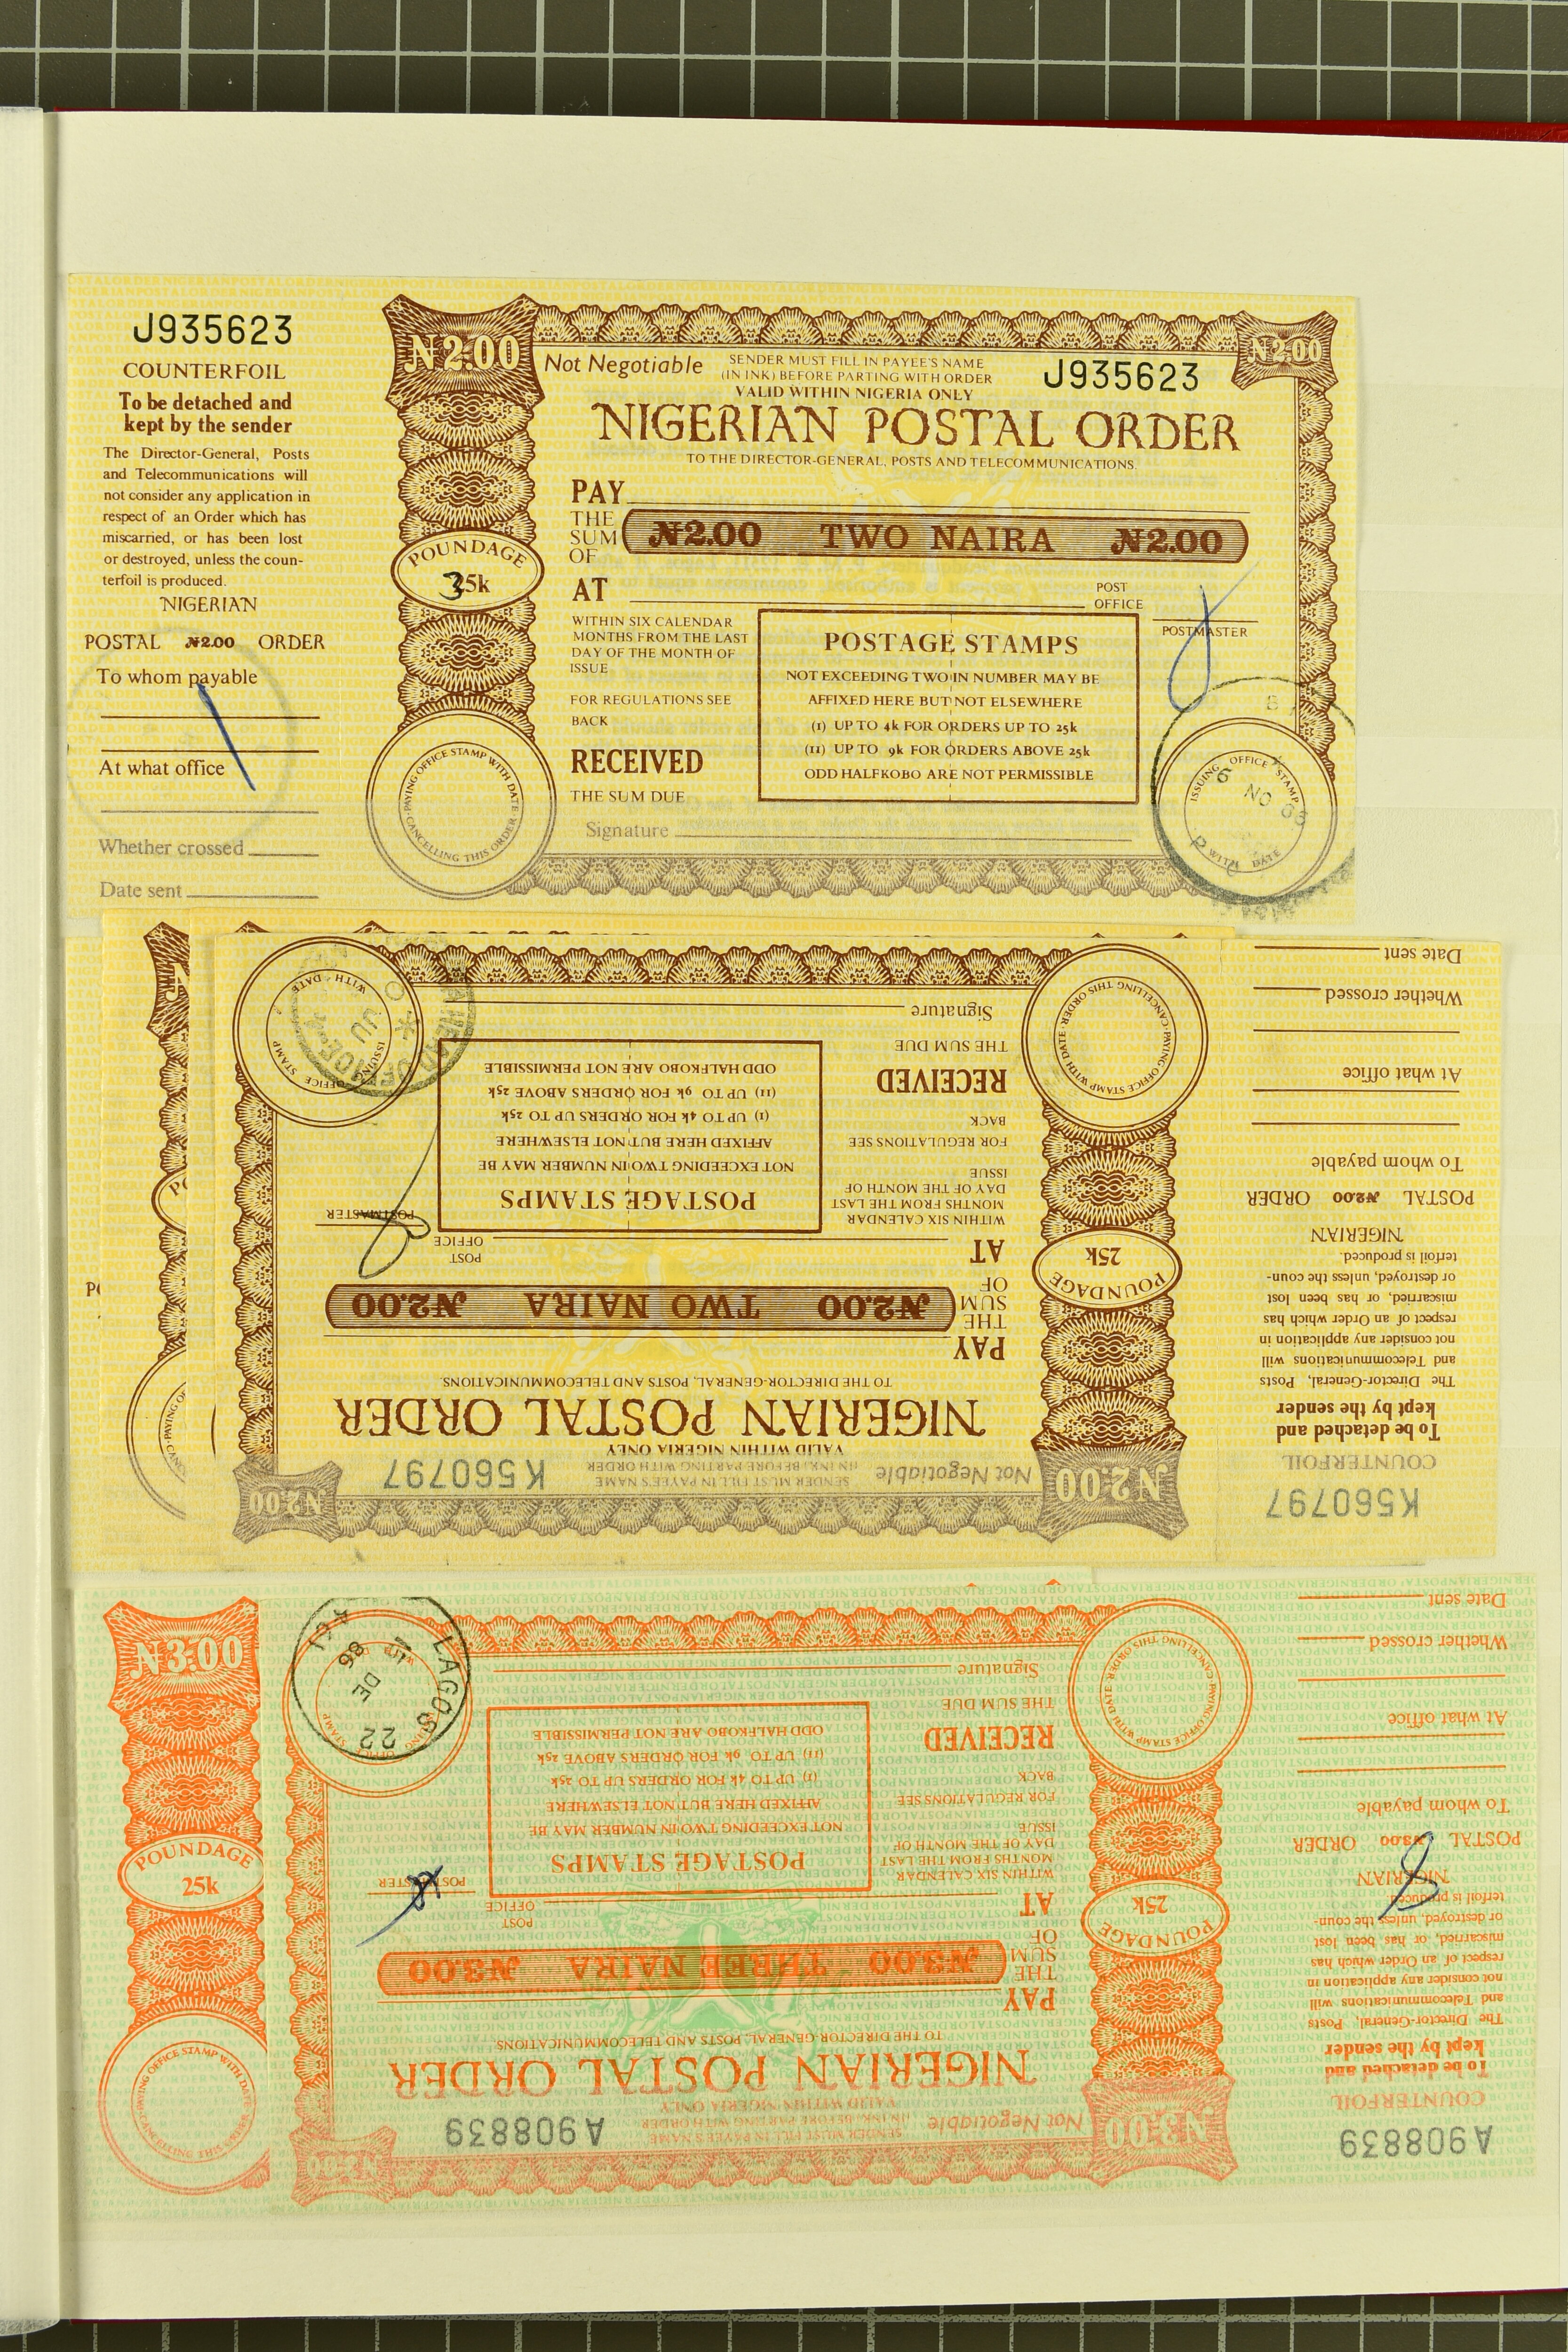 J935623
COUNTERFOIL
To be detached and
kept by the sender
The Director-General, Posts
and Telecommunications will
not consider any application in
respect of an Order which has
miscarried, or has been lost
or destroyed, unless the coun-
terfoil is produced.
NIGERIAN
POSTAL ₦2.00 ORDER
To whom payable
At what office
Whether crossed
Date sent
₦2.00
Not Negotiable
SENDER MUST FILL IN PAYEE'S NAME
(IN INK) BEFORE PARTING WITH ORDER
VALID WITHIN NIGERIA ONLY
J935623
₦2.00
NIGERIAN POSTAL ORDER
TO THE DIRECTOR-GENERAL, POSTS AND TELECOMMUNICATIONS.
PAY
THE
SUM
OF
₦2.00 TWO NAIRA ₦2.00
POUNDAGE
35k
AT
POST
OFFICE
WITHIN SIX CALENDAR
MONTHS FROM THE LAST
DAY OF THE MONTH OF
ISSUE
FOR REGULATIONS SEE
BACK
RECEIVED
THE SUM DUE
Signature
POSTAGE STAMPS
NOT EXCEEDING TWO IN NUMBER MAY BE
AFFIXED HERE BUT NOT ELSEWHERE
(I) UP TO 4k FOR ORDERS UP TO 25k
(II) UP TO 9k FOR ORDERS ABOVE 25k
ODD HALFKOBO ARE NOT PERMISSIBLE
POSTMASTER
PAYING OFFICE STAMP WITH DATE
CANCELLING THIS ORDER
ISSUING OFFICE STAMP
WITH DATE
6 NO
K560797
COUNTERFOIL
To be detached and
kept by the sender
The Director-General, Posts
and Telecommunications will
not consider any application in
respect of an Order which has
miscarried, or has been lost
or destroyed, unless the coun-
terfoil is produced.
NIGERIAN
POSTAL ₦2.00 ORDER
To whom payable
At what office
Whether crossed
Date sent
₦2.00
Not Negotiable
SENDER MUST FILL IN PAYEE'S NAME
(IN INK) BEFORE PARTING WITH ORDER
VALID WITHIN NIGERIA ONLY
K560797
₦2.00
NIGERIAN POSTAL ORDER
TO THE DIRECTOR-GENERAL, POSTS AND TELECOMMUNICATIONS.
PAY
THE
SUM
OF
₦2.00 TWO NAIRA ₦2.00
POUNDAGE
25k
AT
POST
OFFICE
WITHIN SIX CALENDAR
MONTHS FROM THE LAST
DAY OF THE MONTH OF
ISSUE
FOR REGULATIONS SEE
BACK
RECEIVED
THE SUM DUE
Signature
POSTAGE STAMPS
NOT EXCEEDING TWO IN NUMBER MAY BE
AFFIXED HERE BUT NOT ELSEWHERE
(I) UP TO 4k FOR ORDERS UP TO 25k
(II) UP TO 9k FOR ORDERS ABOVE 25k
ODD HALFKOBO ARE NOT PERMISSIBLE
POSTMASTER
PAYING OFFICE STAMP WITH DATE
CANCELLING THIS ORDER
ISSUING OFFICE STAMP
WITH DATE
₦3.00
POUNDAGE
25k
PAYING OFFICE STAMP WITH DATE
CANCELLING THIS ORDER
A908839
COUNTERFOIL
To be detached and
kept by the sender
The Director-General, Posts
and Telecommunications will
not consider any application in
respect of an Order which has
miscarried, or has been lost
or destroyed, unless the coun-
terfoil is produced.
NIGERIAN
POSTAL ₦3.00 ORDER
To whom payable
At what office
Whether crossed
Date sent
₦3.00
Not Negotiable
SENDER MUST FILL IN PAYEE'S NAME
(IN INK) BEFORE PARTING WITH ORDER
VALID WITHIN NIGERIA ONLY
A908839
₦3.00
NIGERIAN POSTAL ORDER
TO THE DIRECTOR-GENERAL, POSTS AND TELECOMMUNICATIONS
PAY
THE
SUM
OF
₦3.00 THREE NAIRA ₦3.00
POUNDAGE
25k
AT
POST
OFFICE
WITHIN SIX CALENDAR
MONTHS FROM THE LAST
DAY OF THE MONTH OF
ISSUE
FOR REGULATIONS SEE
BACK
RECEIVED
THE SUM DUE
Signature
POSTAGE STAMPS
NOT EXCEEDING TWO IN NUMBER MAY BE
AFFIXED HERE BUT NOT ELSEWHERE
(I) UP TO 4k FOR ORDERS UP TO 25k
(II) UP TO 9k FOR ORDERS ABOVE 25k
ODD HALFKOBO ARE NOT PERMISSIBLE
POSTMASTER
PAYING OFFICE STAMP WITH DATE
CANCELLING THIS ORDER
LAGOS
22 DE 86